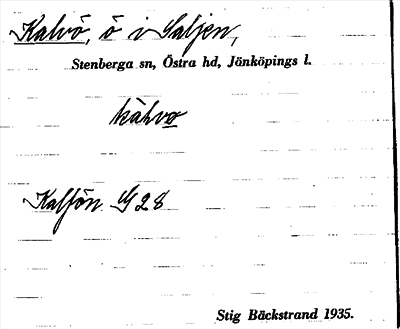 Kalvö, ö i Saljen,
Stenberga sn, Östra hd, Jönköpings l.
kàlvo
Kalfön G 28
Stig Bäckstrand 1935.